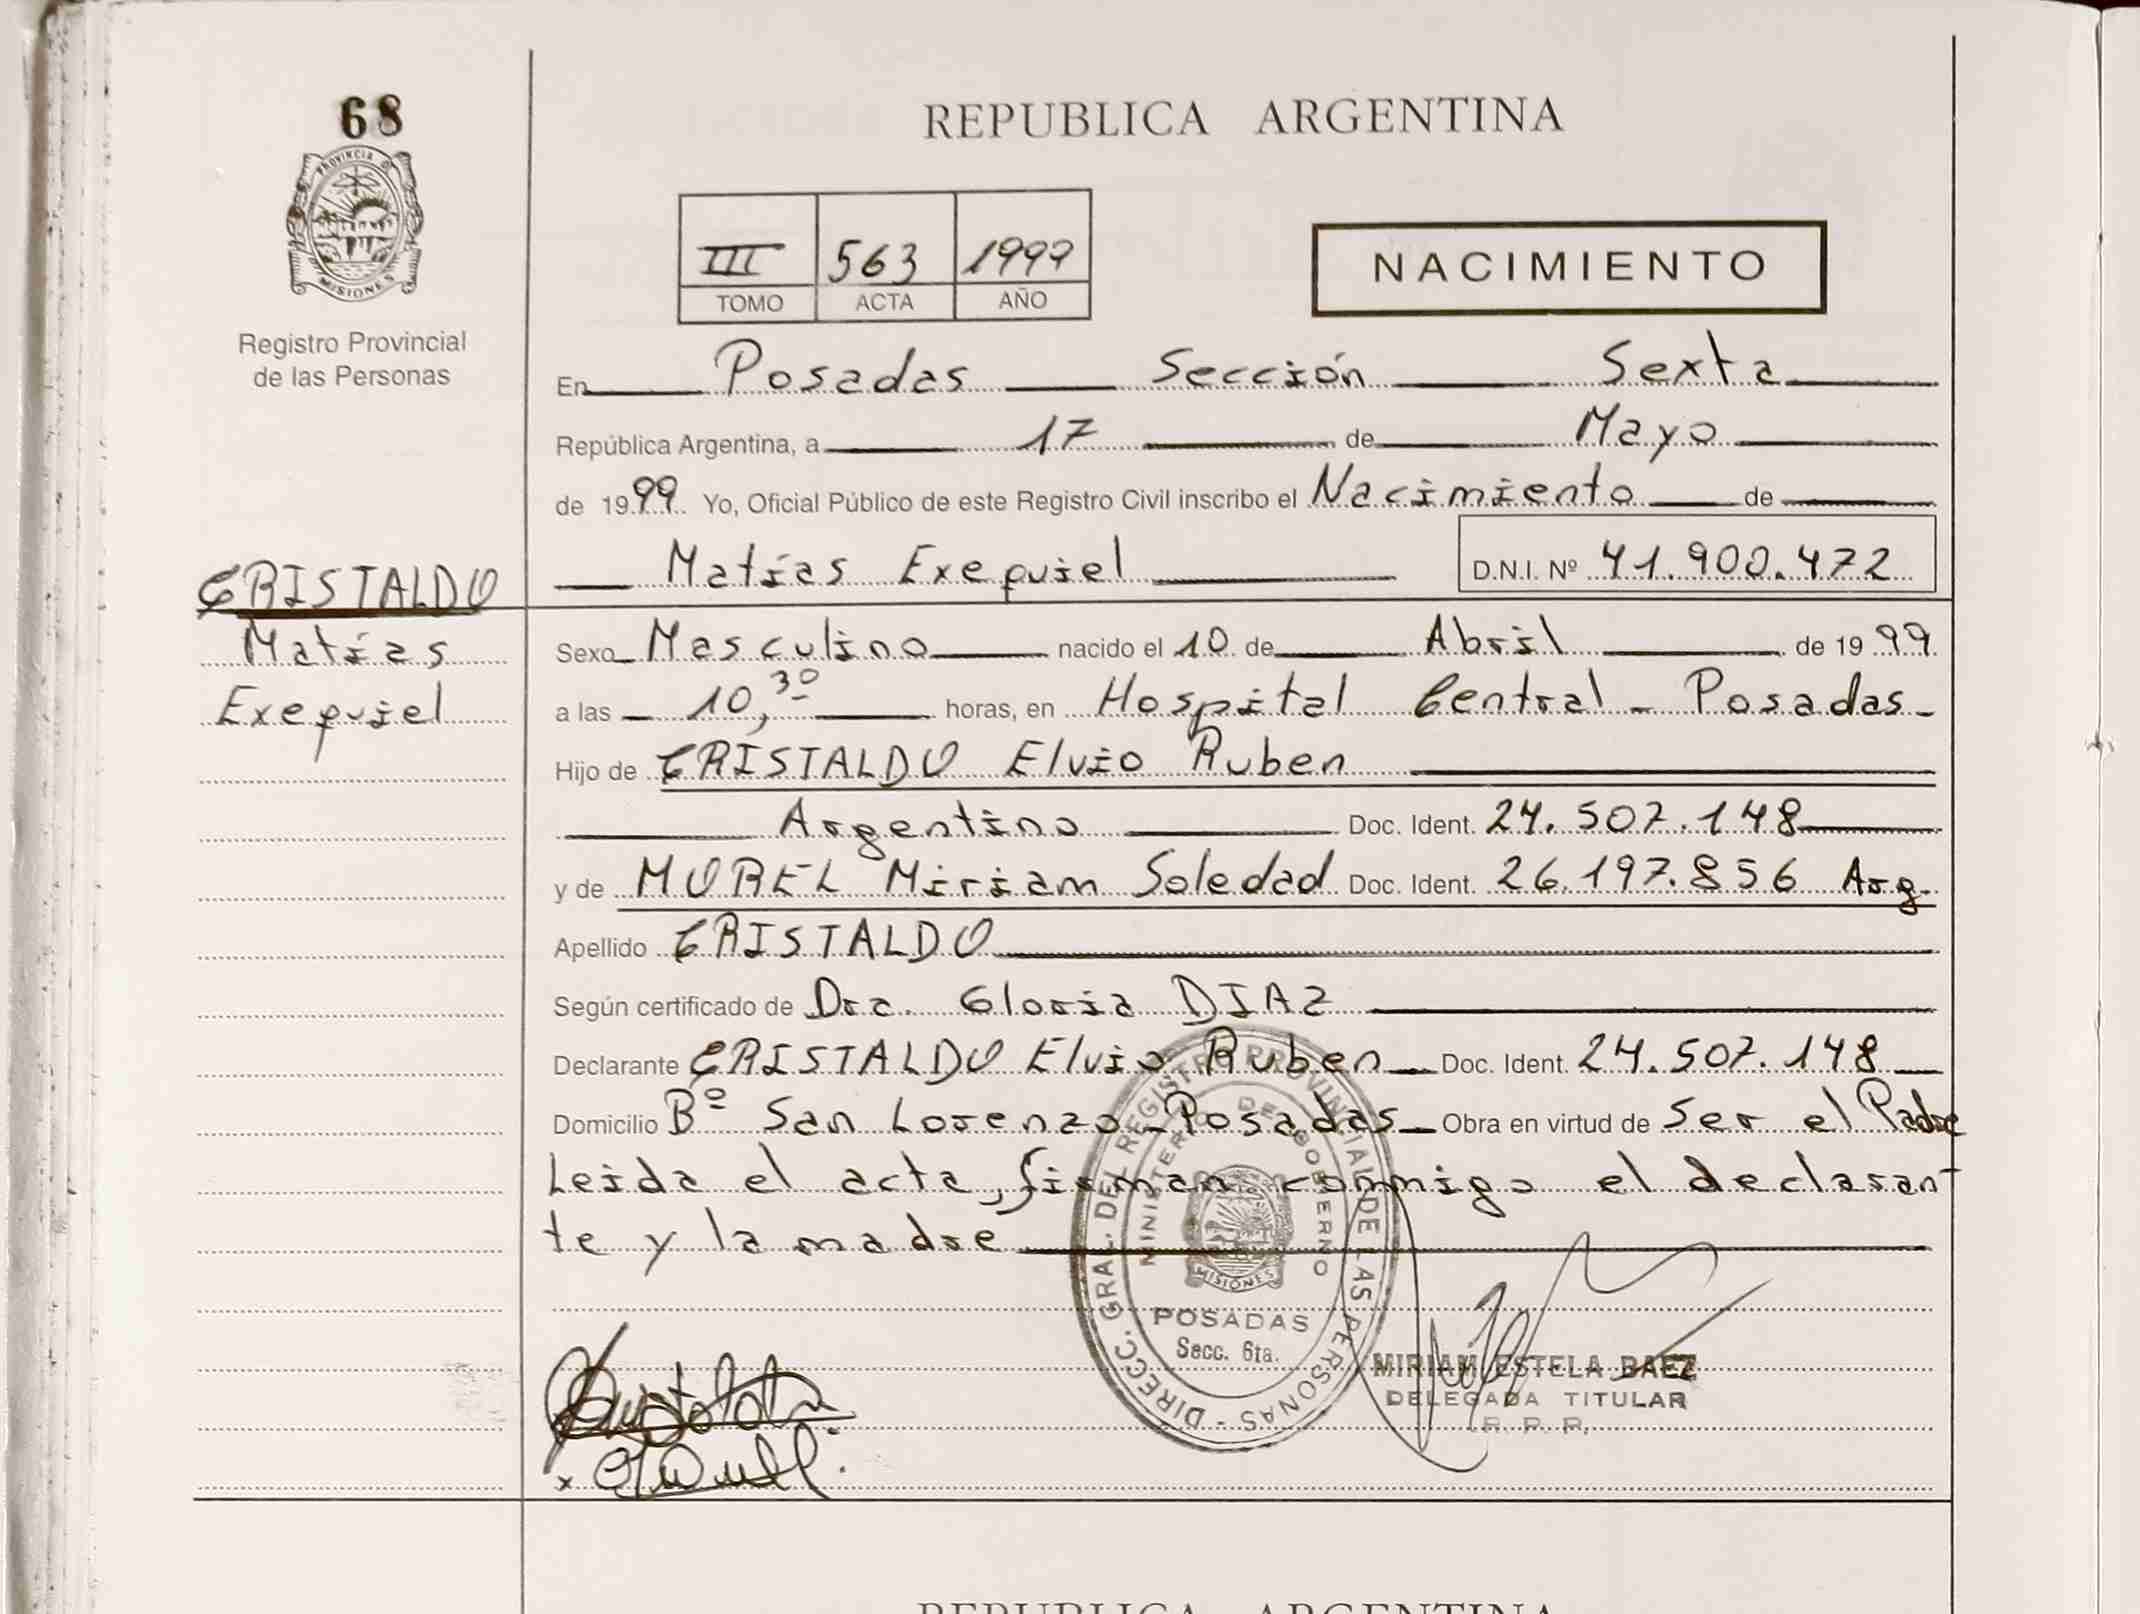 68
PROVINCIA D
MISIONES
Registro Provincial
de las Personas
REPUBLICA ARGENTINA
III 563 1999
TOMO ACTA AÑO
NACIMIENTO
En Posadas Sección Sexta
República Argentina, a 17 de Mayo
de 1999 Yo, Oficial Público de este Registro Civil inscribo el Nacimiento de
Matías Exequiel D.N.I. Nº 41.900.472
CRISTALDO
Matías
Exequiel
Sexo Masculino nacido el 10 de Abril de 1999
a las 10,30 horas, en Hospital Central - Posadas -
Hijo de CRISTALDO Elvio Ruben
Argentino Doc. Ident. 24.507.148
y de MOREL Miriam Soledad Doc. Ident. 26.197.856 Arg.
Apellido CRISTALDO
Según certificado de Dra. Gloria DIAZ
Declarante CRISTALDO Elvio Ruben Doc. Ident. 24.507.148
Domicilio Bº San Lorenzo - Posadas Obra en virtud de Ser el Padre
Leida el acta, firman conmigo el declaran-
te y la madre
DIRECC. GRAL. DEL REGISTRO PROVINCIAL DE LAS PERSONAS -
MINISTERIO DE GOBIERNO
MISIONES
POSADAS
Secc. 6ta.
MIRIAM ESTELA BAEZ
DELEGADA TITULAR
R. P. P.
REPUBLICA ARGENTINA